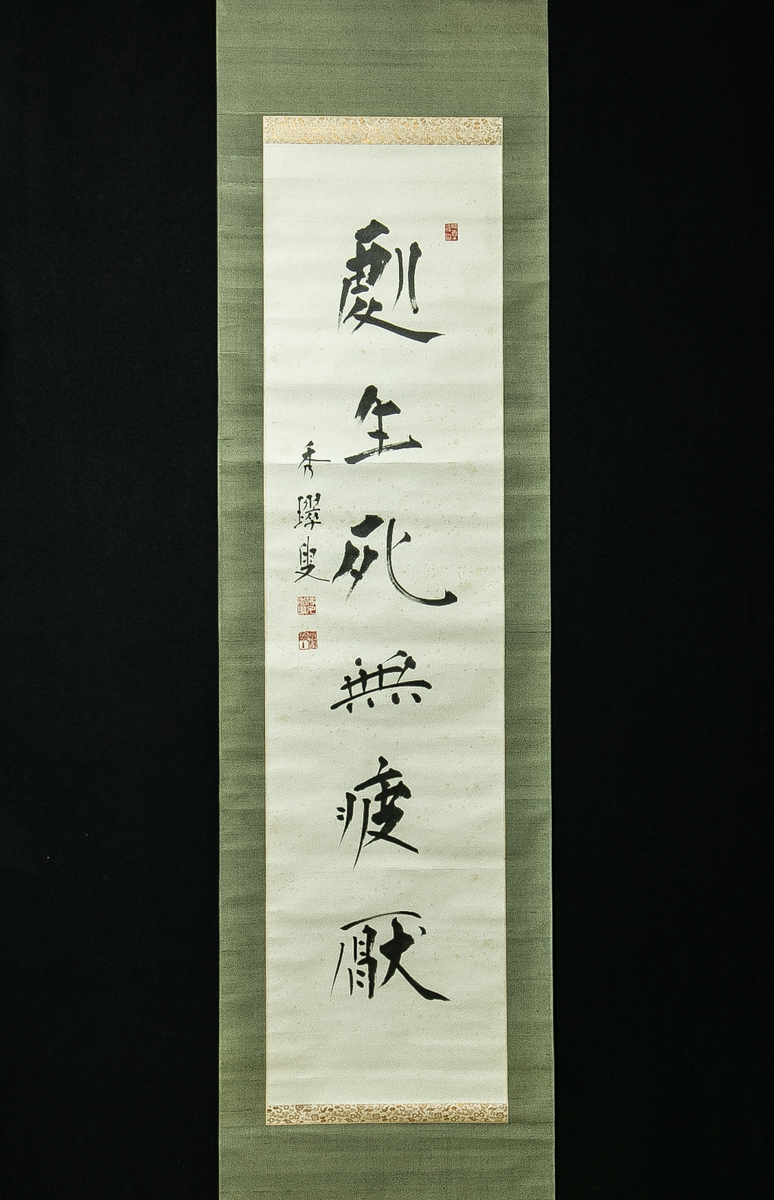 處生死無疲厭
秀叟